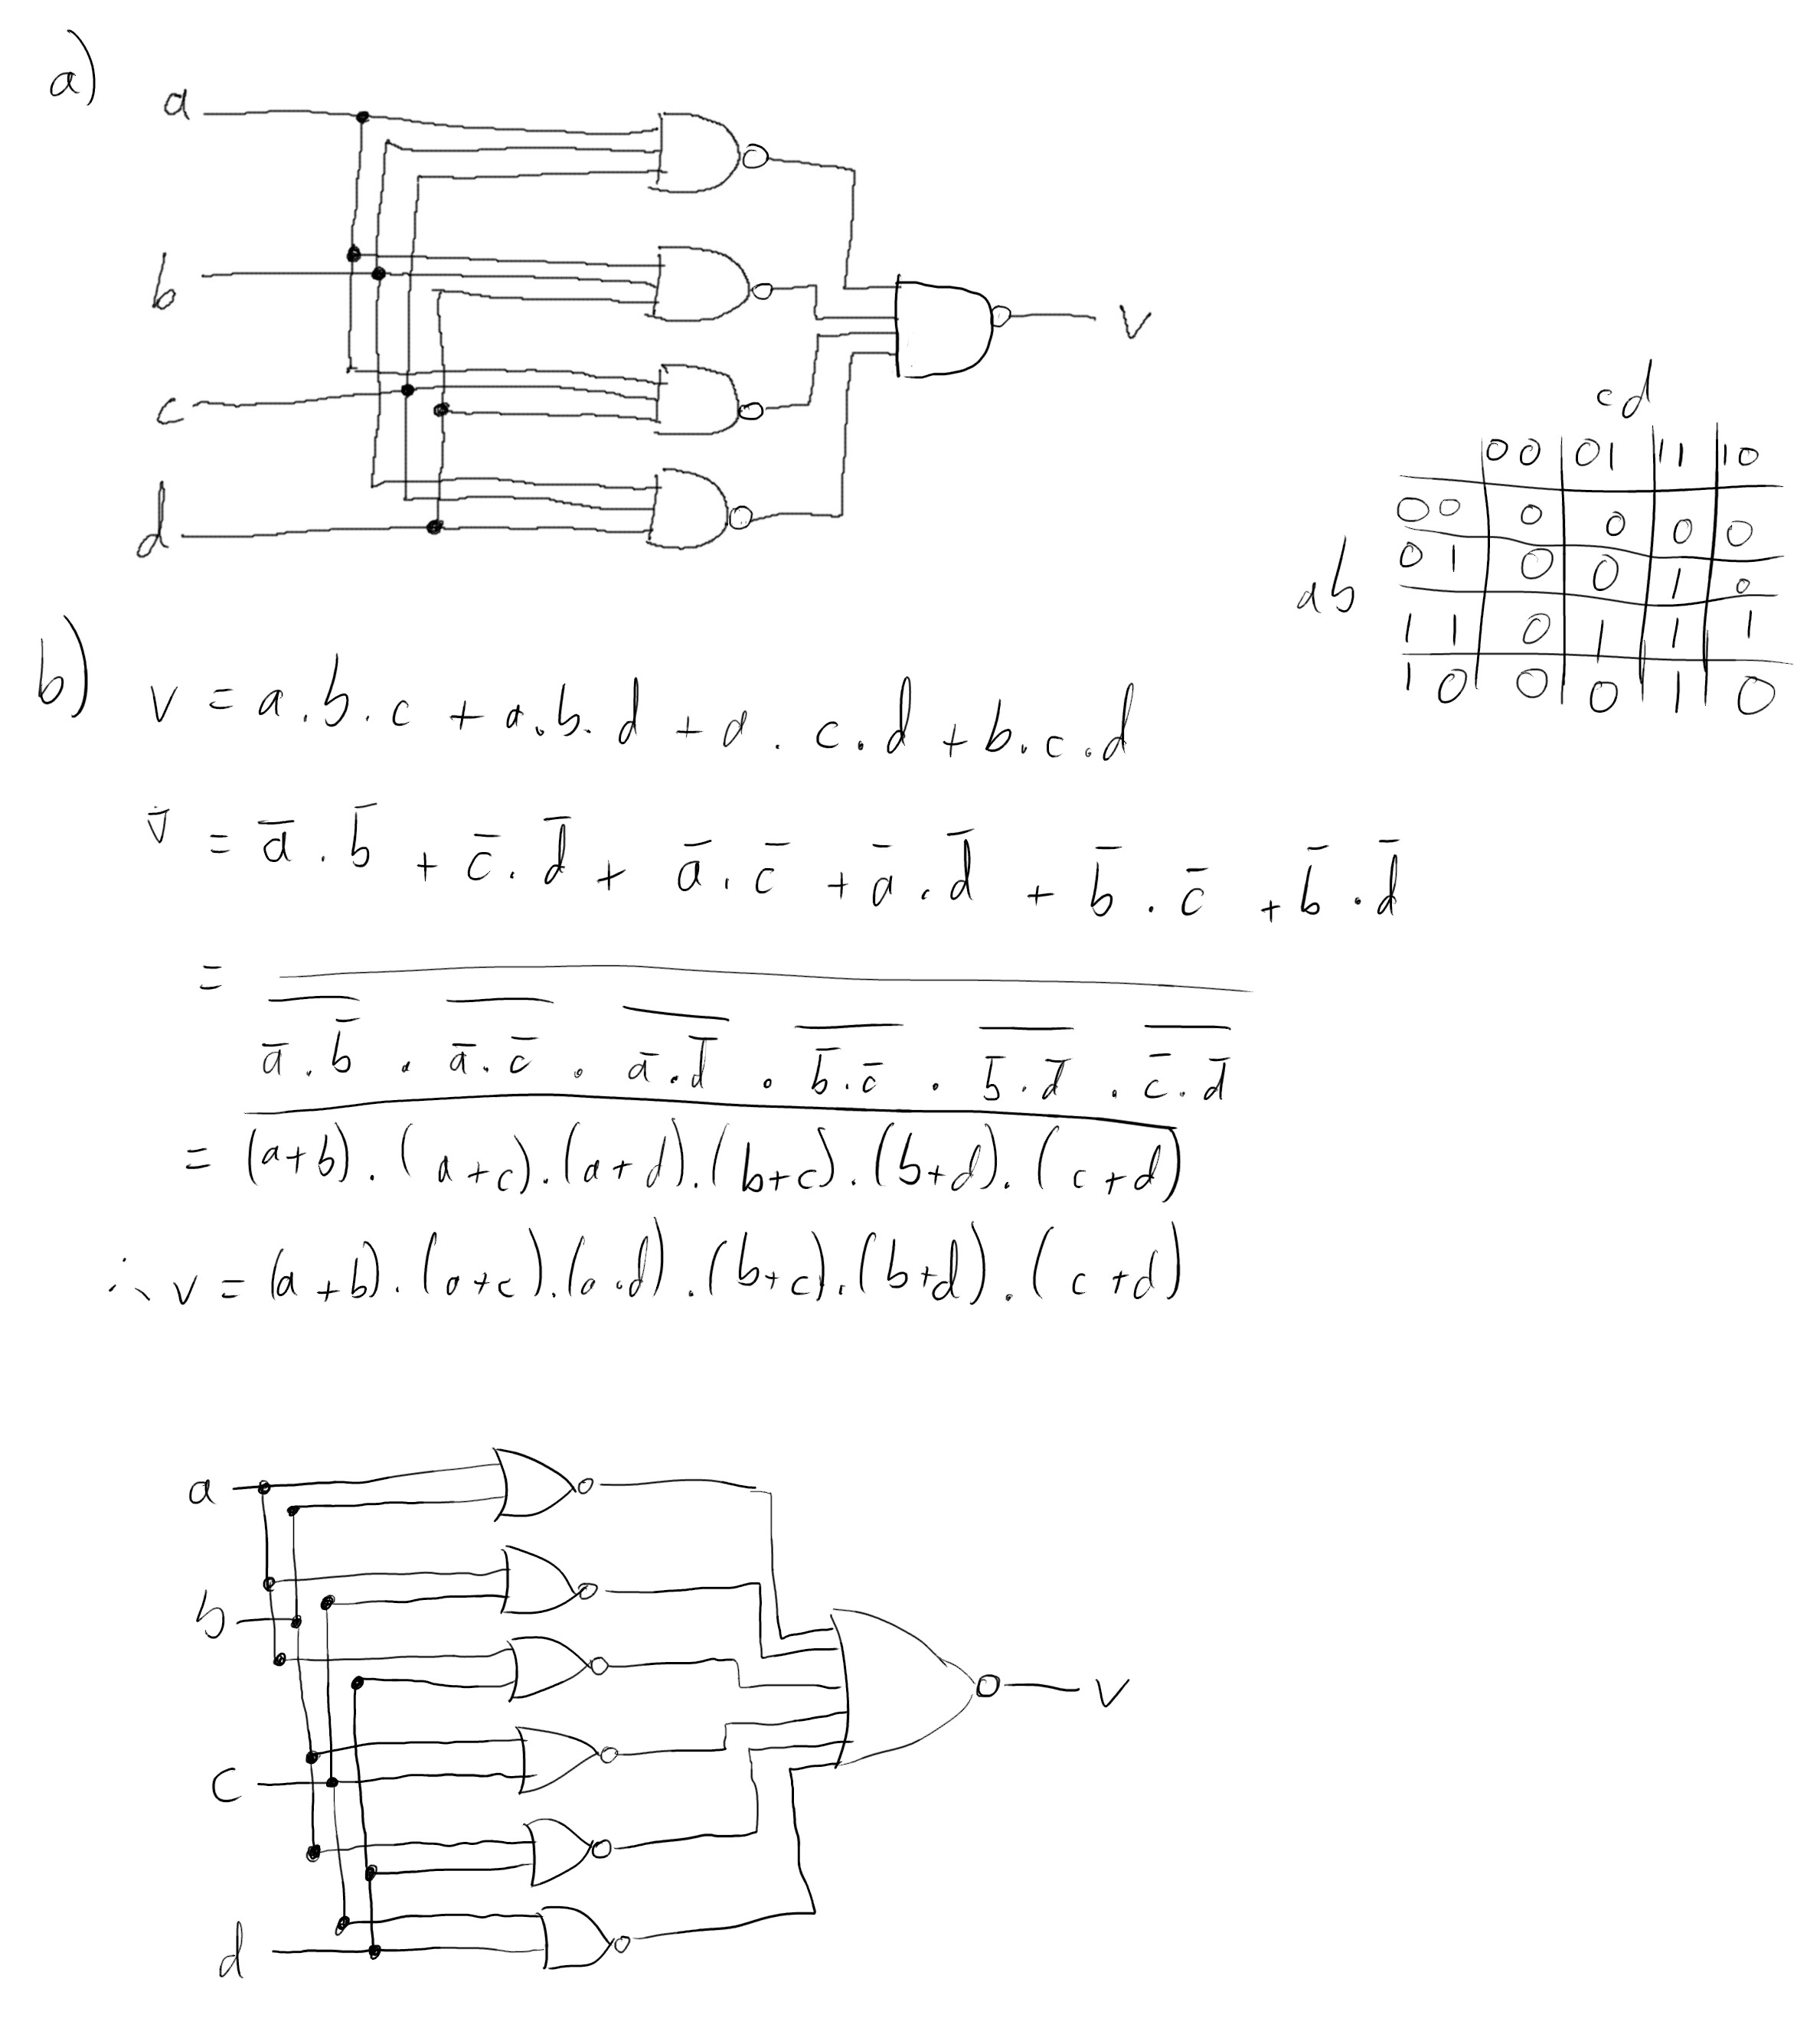 a)
a
b
c
d
v
cd
00 01 11 10
00 0 0 0 0
01 0 0 1 0
ab
11 0 1 1 1
10 0 0 1 0
b)
v = a.b.c + a.b.d + a.c.d + b.c.d
v̄ = ā.b̄ + c̄.d̄ + ā.c̄ + ā.d̄ + b̄.c̄ + b̄.d̄
= ā.b̄ . ā.c̄ . ā.d̄ . b̄.c̄ . b̄.d̄ . c̄.d̄
= (a+b).(a+c).(a+d).(b+c).(b+d).(c+d)
∴ v = (a+b).(a+c).(a.d).(b+c).(b+d).(c+d)
a
b
c
d
v